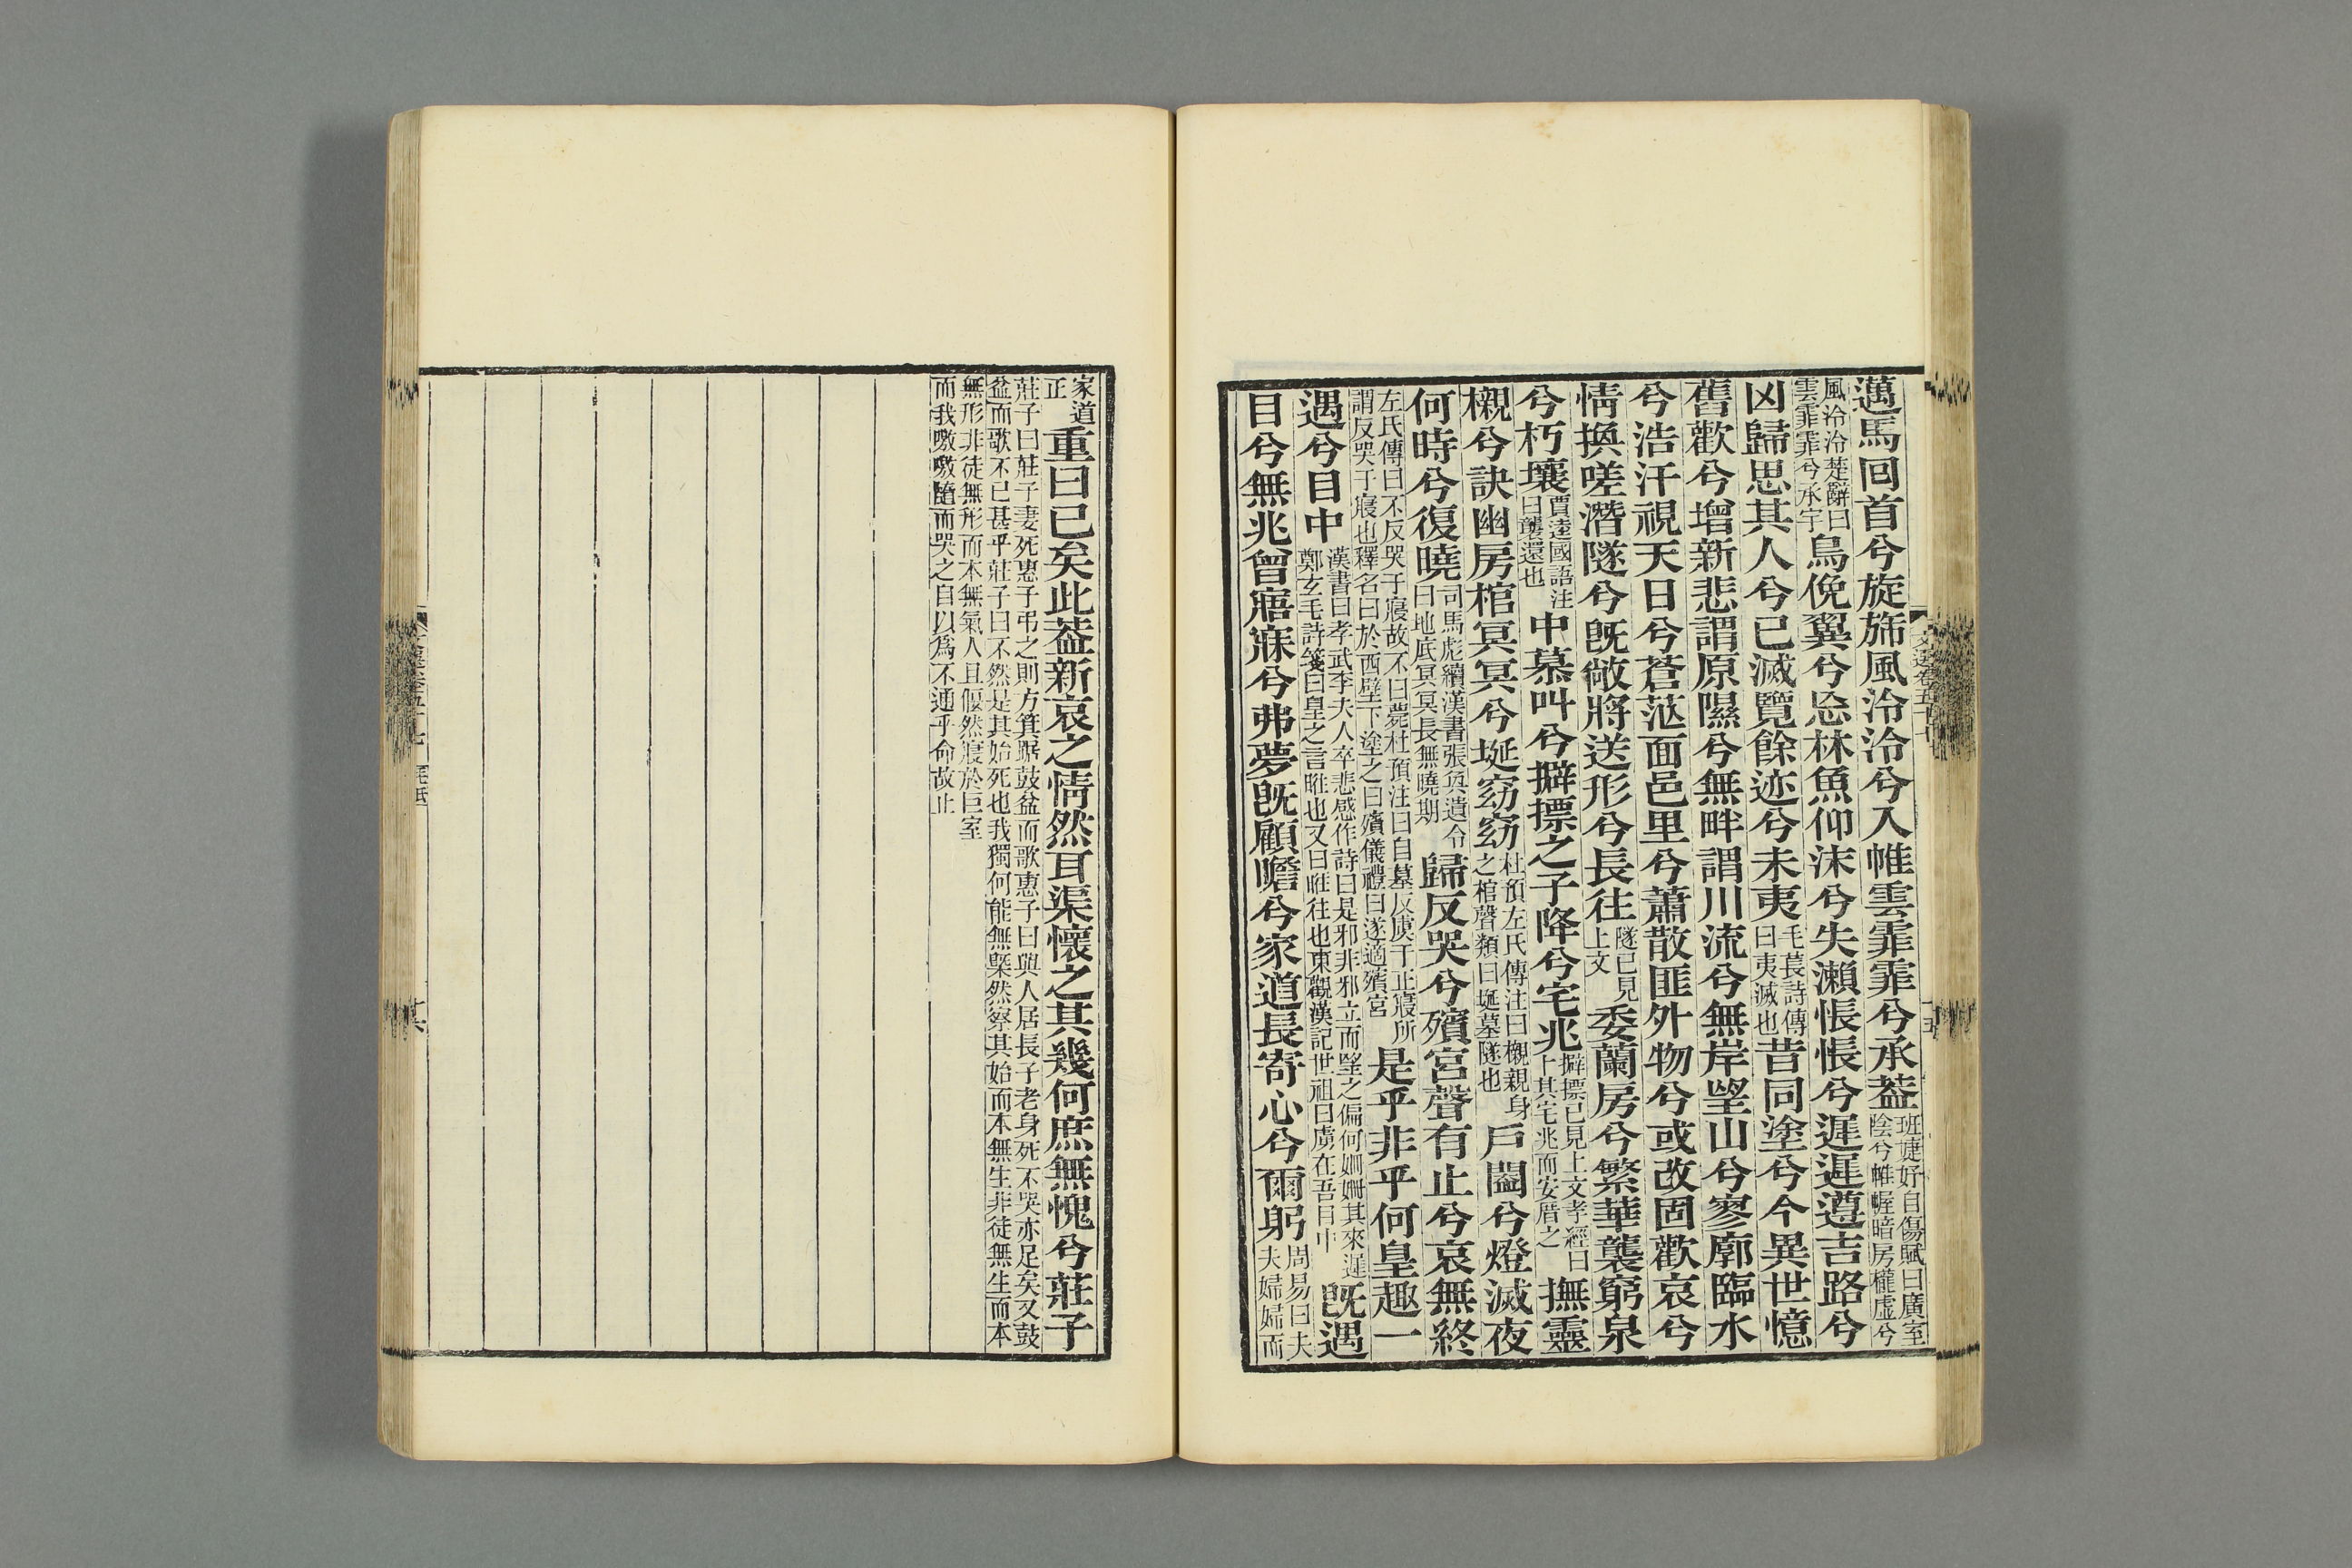 邁馬回首兮旋旆風泠泠兮入帷雲霏霏兮承葢班婕妤自傷賦曰廣室陰兮帷幄暗房櫳虛兮
風泠泠楚辭曰雲霏霏兮承宇鳥俛翼兮忘林魚仰沫兮失瀨悵悵兮遲遲遵吉路兮
凶歸思其人兮已滅覽餘迹兮未夷毛萇詩傳曰夷滅也昔同塗兮今異世憶
舊歡兮增新悲謂原隰兮無畔謂川流兮無岸望山兮寥廓臨水
兮浩汗視天日兮蒼茫面邑里兮蕭散匪外物兮或改固歡哀兮
情換嗟潛隧兮旣敞將送形兮長往隧已見上文委蘭房兮繁華襲窮泉
兮朽壤賈逵國語注曰襲還也中慕叫兮擗摽之子降兮宅兆擗摽已見上文孝經曰卜其宅兆而安厝之撫靈
櫬兮訣幽房棺冥冥兮埏窈窈杜預左氏傳注曰櫬親身之棺聲類曰埏墓隧也戶闔兮燈滅夜
何時兮復曉司馬彪續漢書張奐遺令曰地底冥冥長無曉期歸反哭兮殯宮聲有止兮哀無終
左氏傳曰不反哭于寢故不曰薨杜預注曰自墓反虞于正寢所謂反哭于寢也釋名曰於西壁下塗之曰殯儀禮曰遂適殯宮是乎非乎何皇趣一
遇兮目中漢書曰孝武李夫人卒悲感作詩曰是邪非邪立而望之偏何姍姍其來遲鄭玄毛詩箋曰皇之言暀也又曰暀往也東觀漢記世祖曰虜在吾目中旣遇
目兮無兆曾寤寐兮弗夢旣顧瞻兮家道長寄心兮爾躬周易曰夫夫婦婦而
文選卷五十七
十五
家道正重曰已矣此葢新哀之情然耳渠懷之其幾何庶無愧兮莊子
莊子曰莊子妻死惠子弔之則方箕踞鼓盆而歌惠子曰與人居長子老身死不哭亦足矣又鼓
盆而歌不已甚乎莊子曰不然是其始死也我獨何能無槩然察其始而本無生非徒無生而本
無形非徒無形而本無氣人且偃然寢於巨室
而我噭噭隨而哭之自以爲不通乎命故止